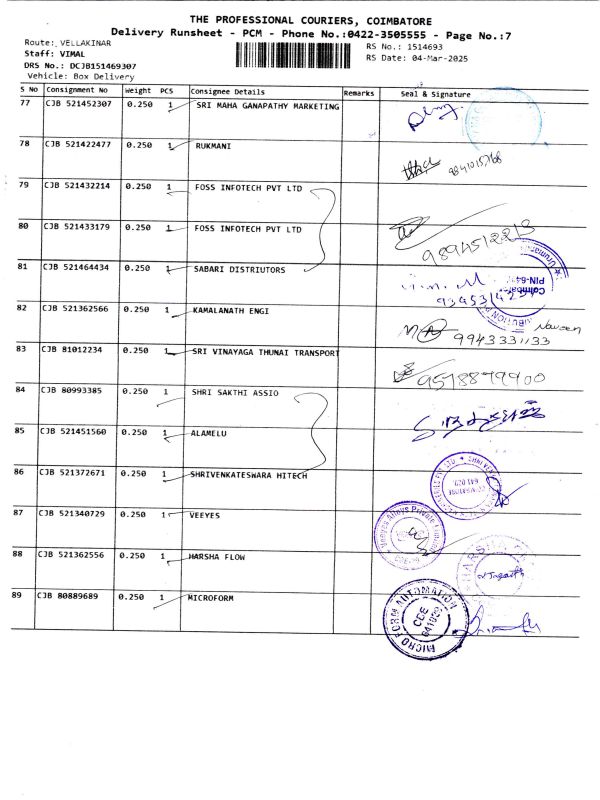 THE PROFESSIONAL COURIERS, COIMBATORE
Delivery Runsheet - PCM - Phone No.:0422-3505555 - Page No.:7
Route: VELLAKINAR
RS No.: 1514693
Staff: VIMAL
RS Date: 04-Mar-2025
DRS No.: DCJB151469307
Vehicle: Box Delivery
S No Consignment No Weight PCS Consignee Details Remarks Seal & Signature
77 CJB 521452307 0.250 1 SRI MAHA GANAPATHY MARKETING
78 CJB 521422477 0.250 1 RUKMANI
79 CJB 521432214 0.250 1 FOSS INFOTECH PVT LTD
80 CJB 521433179 0.250 1 FOSS INFOTECH PVT LTD
81 CJB 521464434 0.250 1 SABARI DISTRIUTORS
Coimbatore
82 CJB 521362566 0.250 1 KAMALANATH ENGI
Naveen
9943331133
83 CJB 81012234 0.250 1 SRI VINAYAGA THUNAI TRANSPORT
9598899900
84 CJB 80993385 0.250 1 SHRI SAKTHI ASSIO
85 CJB 521451560 0.250 1 ALAMELU
86 CJB 521372671 0.250 1 SHRIVENKATESWARA HITECH
87 CJB 521340729 0.250 1 VEEYES
88 CJB 521362556 0.250 1 HARSHA FLOW
89 CJB 80889689 0.250 1 MICROFORM
MICRO FORM AUTOMATION